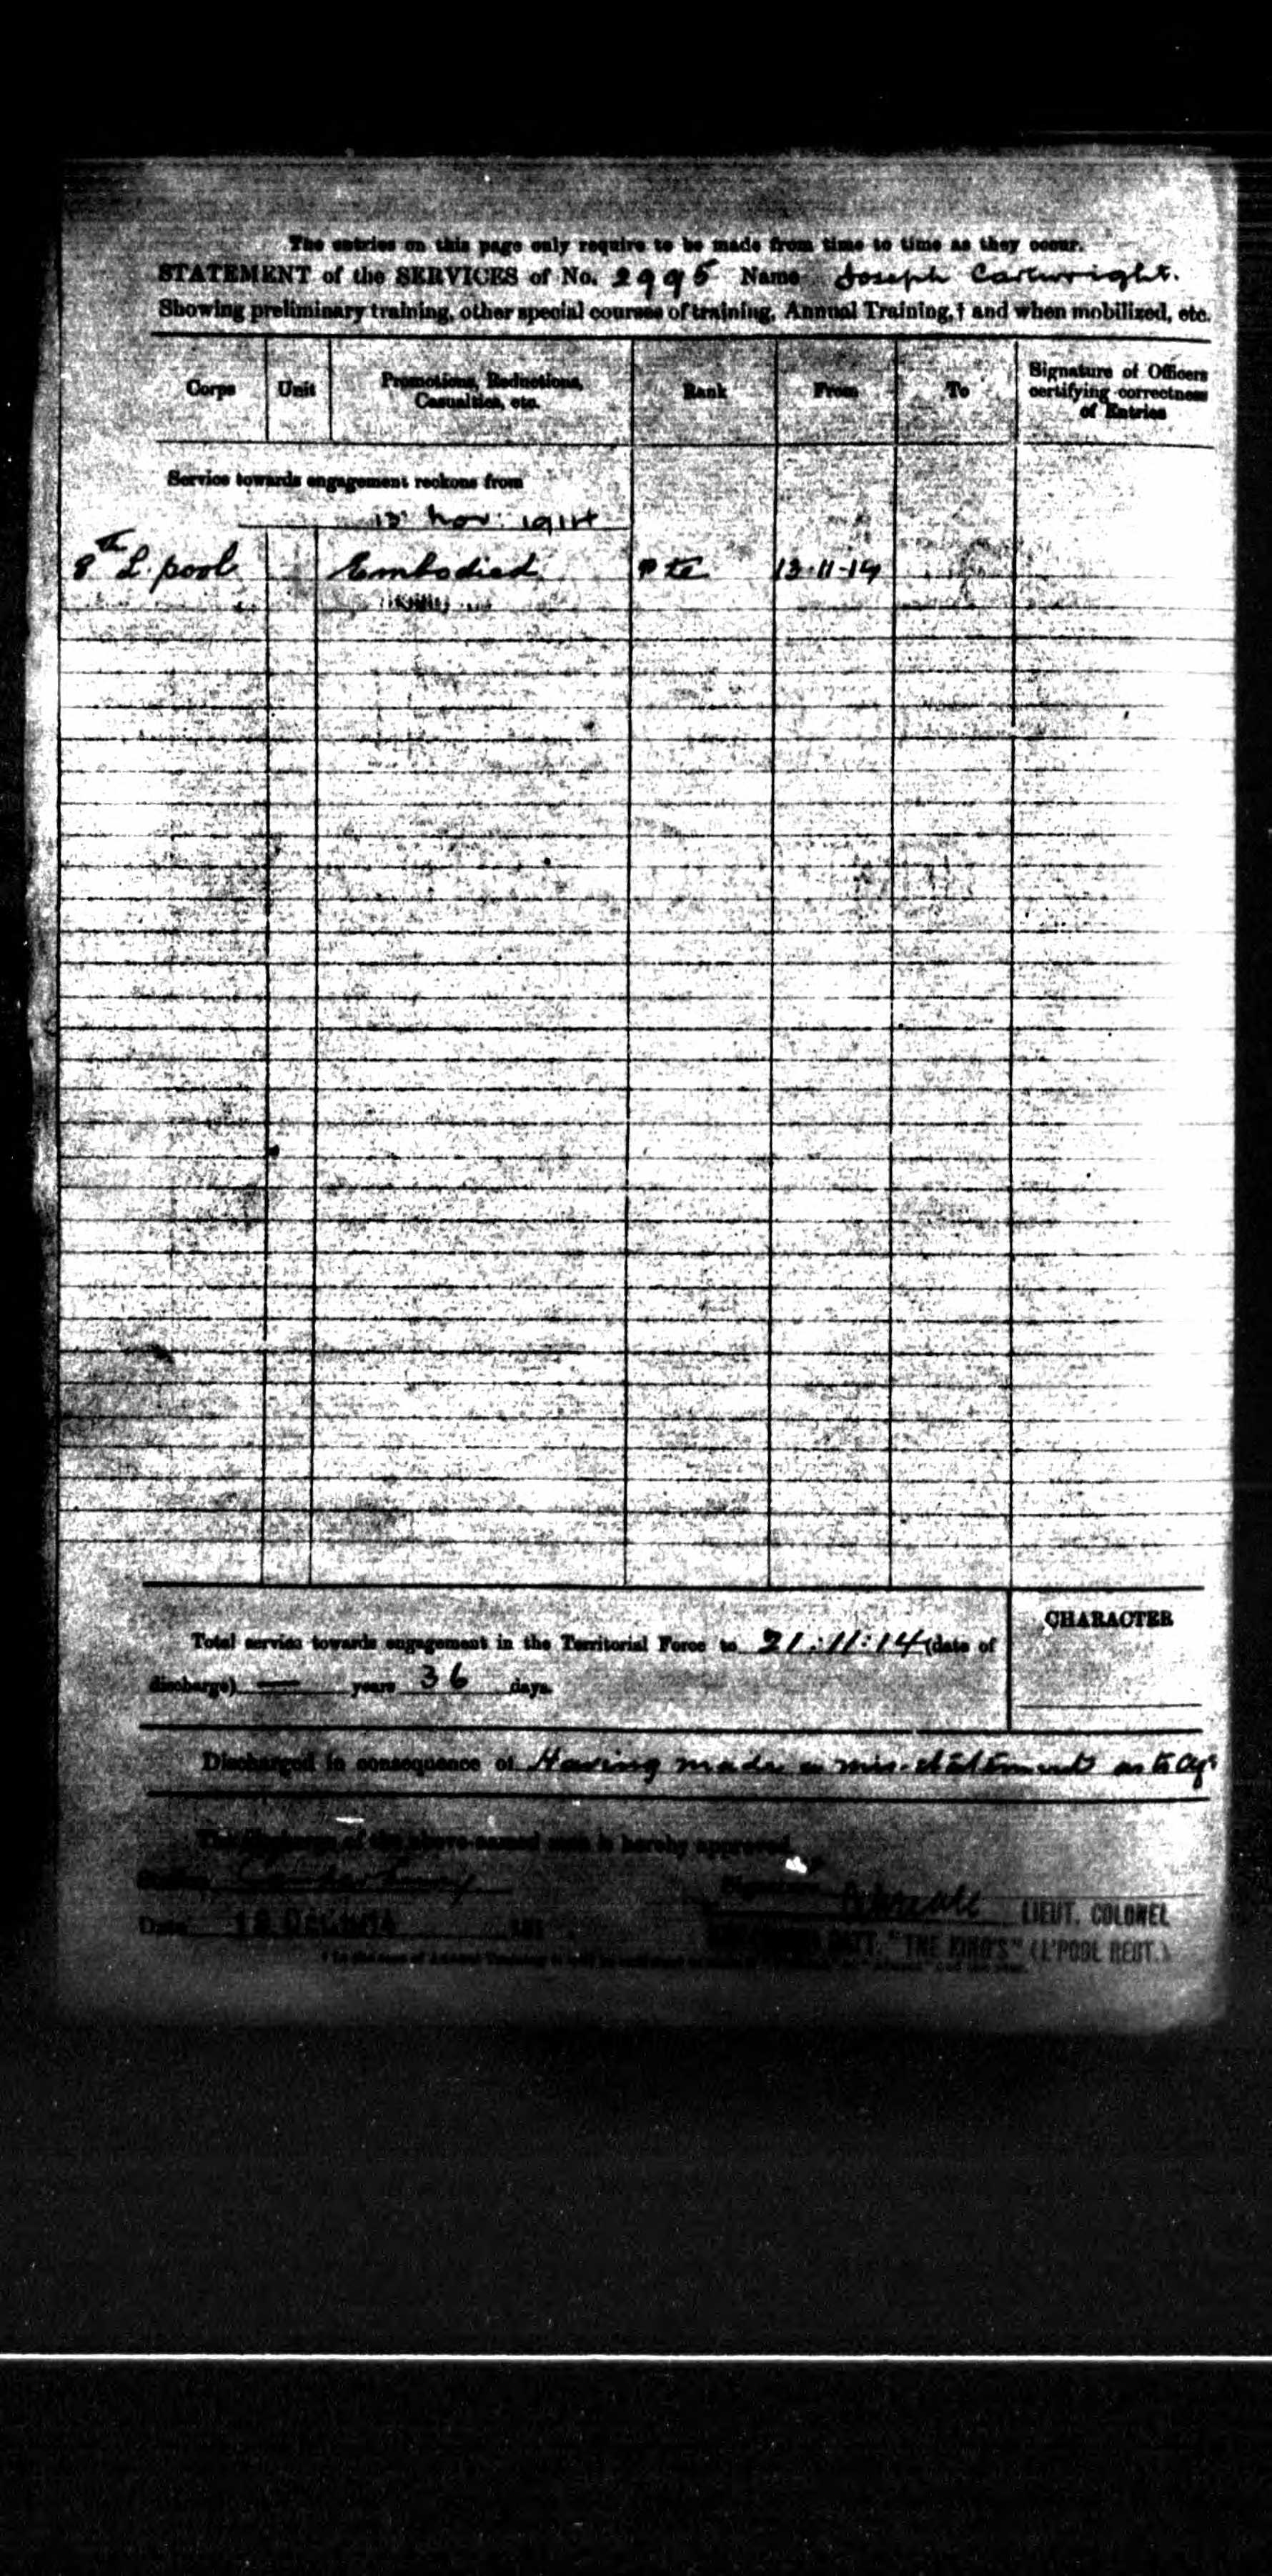 The entries on this page only require to be made from time to time as they occur.
STATEMENT of the SERVICES of No. 2995 Name Joseph Cartwright.
Showing preliminary training, other special courses of training, Annual Training,† and when mobilized, etc.
Corps Unit Promotions, Reductions, Casualties, etc. Rank From To Signature of Officers certifying correctness of Entries
Service towards engagement reckons from
13 Nov: 1914
8th L.pool Embodied Pte 13-11-14
CHARACTER
Total service towards engagement in the Territorial Force to 21:11:14 (date of
discharge) — years 36 days.
Discharged in consequence of Having made a mis-statement as to age
The discharge of the above-named man is hereby approved.
Station
Signature LIEUT. COLONEL
Date
BATT. "THE KING'S" (L'POOL REGT.)